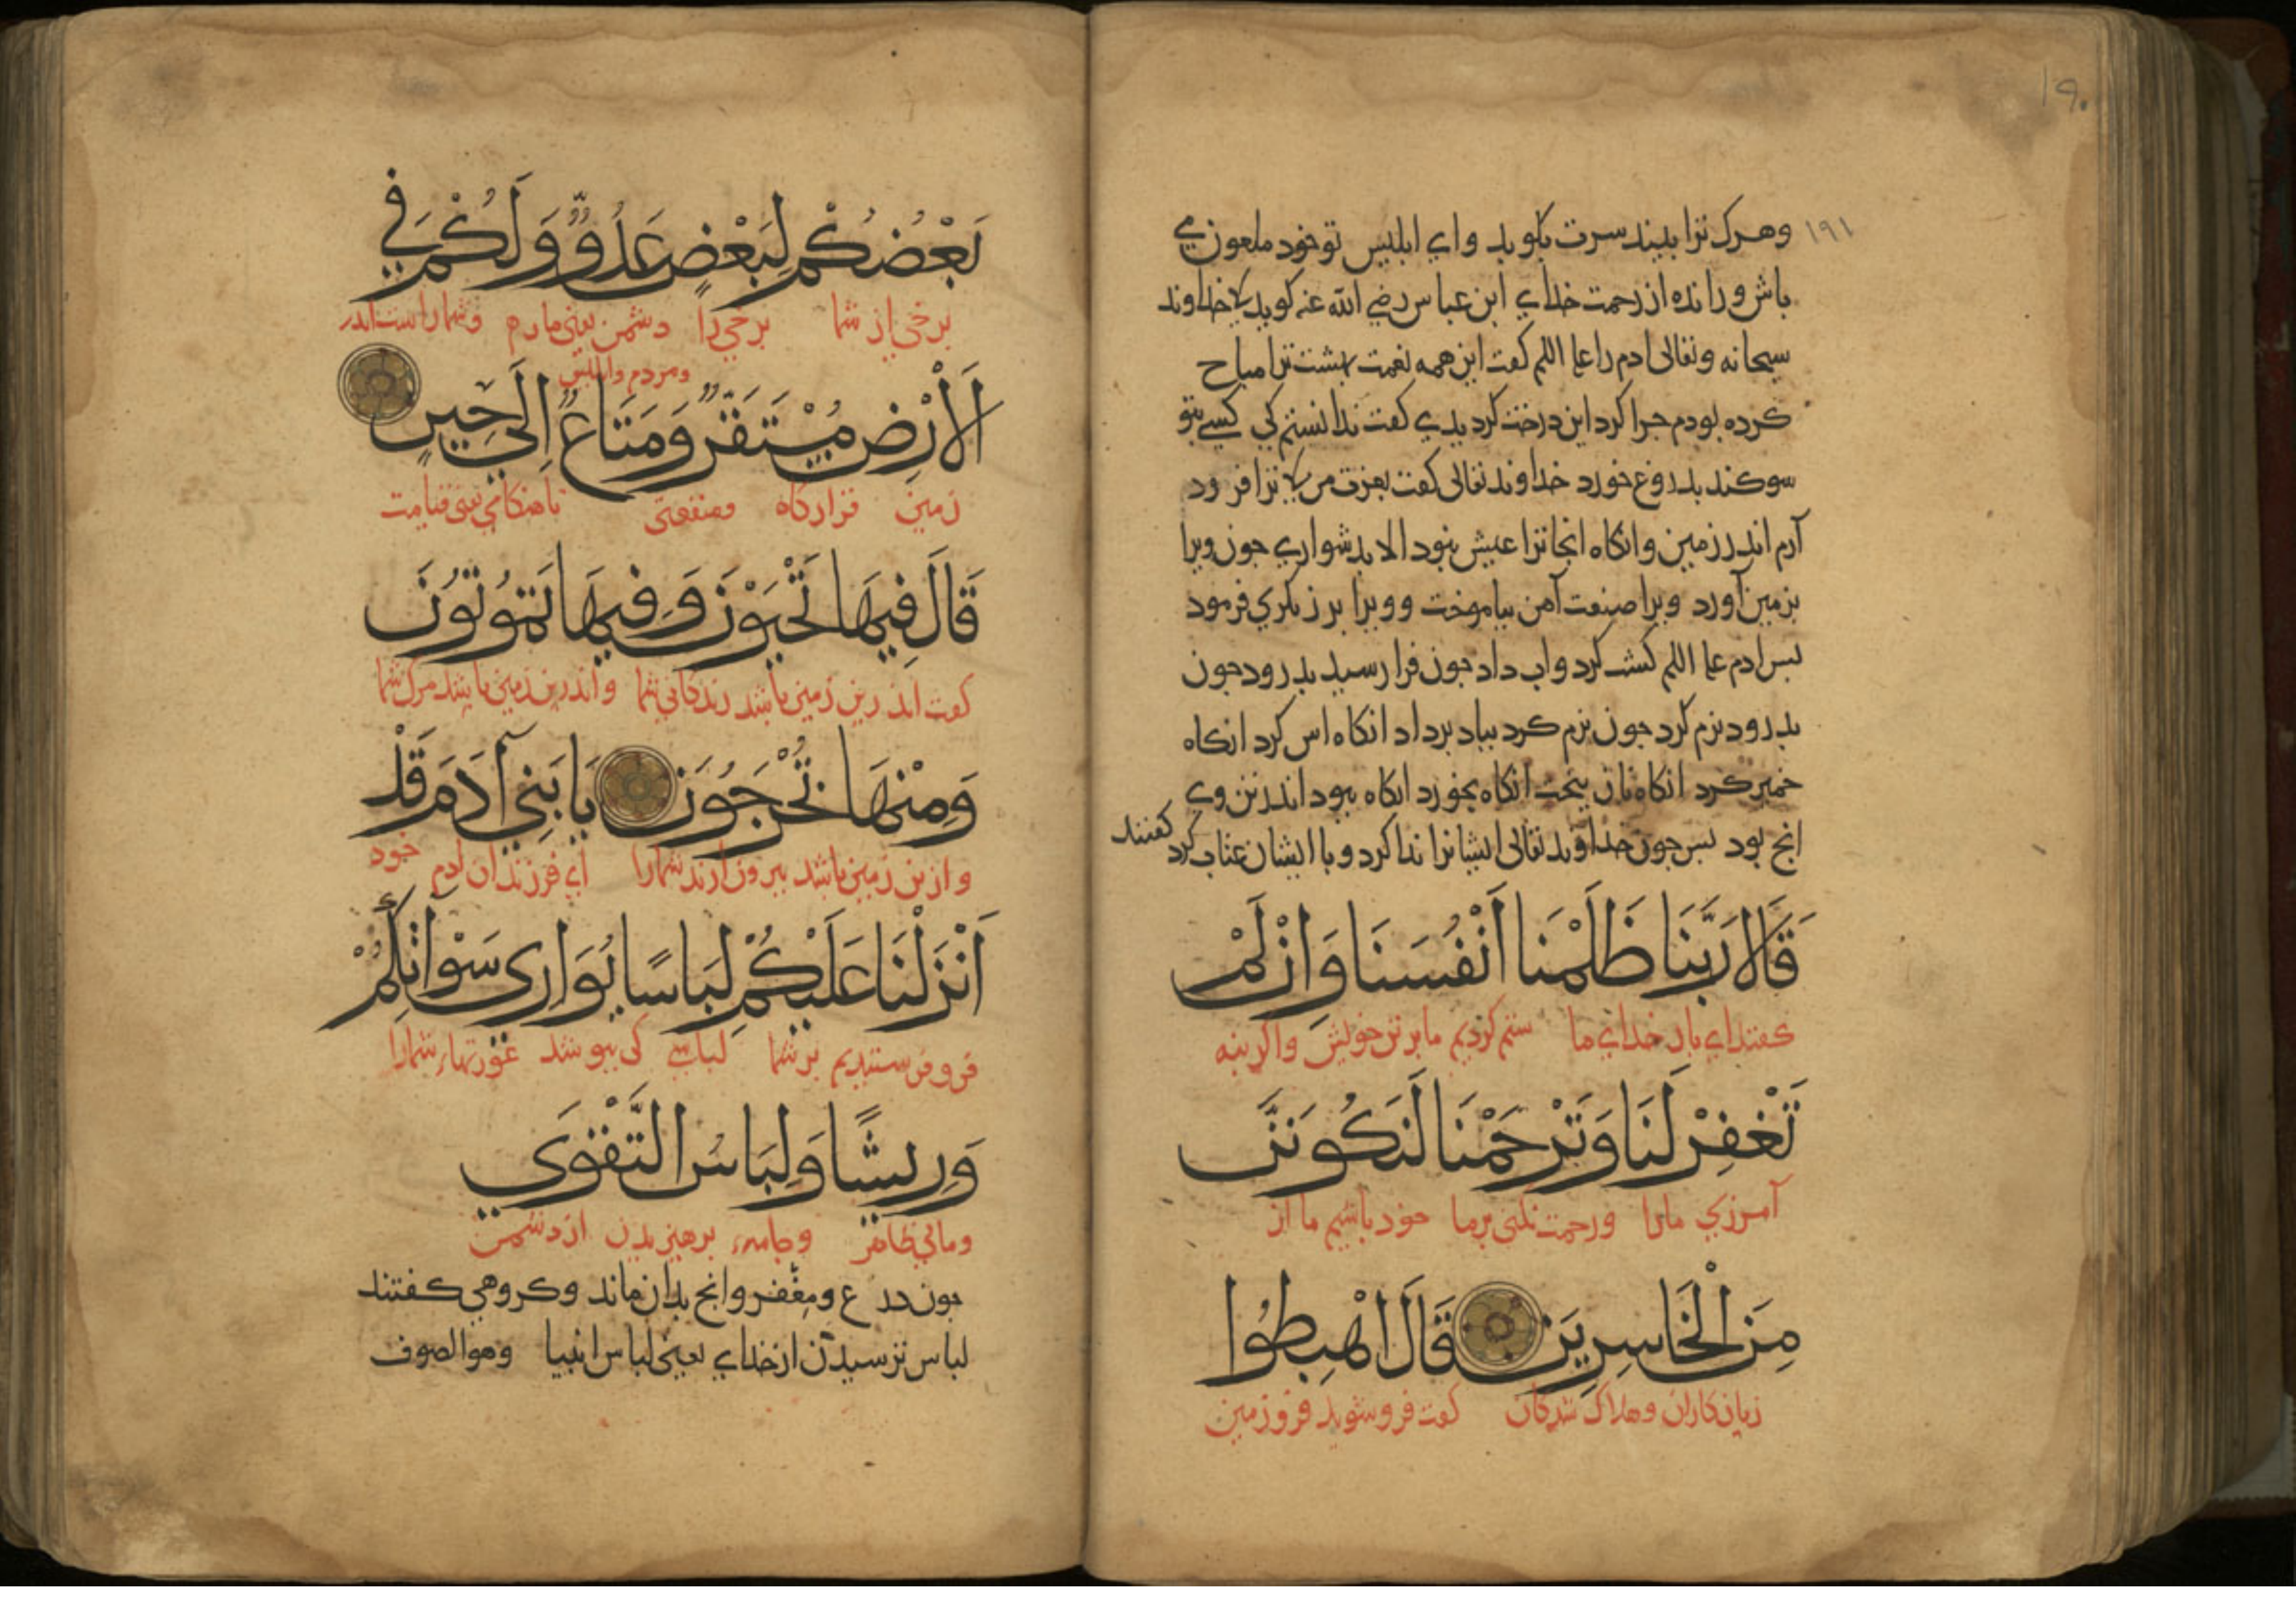 ۱۹۰
۱۹۱
وهرک ترا بیند سرت بکوبد وای ابلیس تو خود ملعون می
باش و رانده از رحمت خدای ابن عباس رضی الله عنه کوید کا خداوند
سبحانه وتعالی ادم را علیه السلم کفت این همه نعمت بهشت ترا مباح
کرده بودم جرا کرد این درخت کردیدی کفت ندانستم کی کسی بتو
سوکند بدروغ خورد خداوند تعالی کفت بعزت من کا ترا فرود
آرم اندر زمین وانکاه انجا ترا عیش نبود الا بدشواری جون ویرا
بزمین آورد ویرا صنعت آهن بیاموخت و ویرا برزیکری فرمود
بس ادم علیه السلم کشت کرد واب داد جون فرا رسید بدرود جون
بدرود نرم کرد جون نرم کرد بباد برداد انکاه اس کرد انکاه
خمیر کرد انکاه نان بخت انکاه بخورد انکاه ببود اندر تن وی
انج بود بس جون خداوند تعالی ایشانرا ندا کرد و با ایشان عتاب کرد کفتند
قَالَا رَبَّنَا ظَلَمْنَا أَنْفُسَنَا وَإِنْ لَمْ
کفتند ای بار خدای ما ستم کردیم ما بر تن خویش واکر بنه
تَغْفِرْ لَنَا وَتَرْحَمْنَا لَنَكُونَنَّ
آمرزی مارا ورحمت نکنی برما خود باشیم ما از
مِنَ الْخَاسِرِينَ قَالَ اهْبِطُوا
زیان کاران وهلاک شدکان کفت فرو شوید فرو زمین
بَعْضُكُمْ لِبَعْضٍ عَدُوٌّ وَلَكُمْ فِي
برخی از شما برخی را دشمن یعنی مارم وشما راست اندر
ومردم وابلیس
الْأَرْضِ مُسْتَقَرٌّ وَمَتَاعٌ إِلَى حِينٍ
زمین قرارکاه ومنفعتی تا هنکامی یعنی قیامت
قَالَ فِيهَا تَحْيَوْنَ وَفِيهَا تَمُوتُونَ
کفت اندرین زمین باشد زندکانی شما واندرین زمین باشد مرک شما
وَمِنْهَا تُخْرَجُونَ يَا بَنِي آدَمَ قَدْ
وازین زمین باشد بیرون ارند شمارا ای فرزندان ادم خود
أَنْزَلْنَا عَلَيْكُمْ لِبَاسًا يُوَارِي سَوْآتِكُمْ
فرو فرستیدیم بر شما لباسی کی ببوشد عورتهاء شمارا
وَرِيشًا وَلِبَاسُ التَّقْوَى
ومالی ظاهر وجامهء برهیزیدن از دشمن
جون درع ومغفر وانج بدان ماند وکروهی کفتند
لباس ترسیدن از خدای یعنی لباس انبیا وهو الصوف